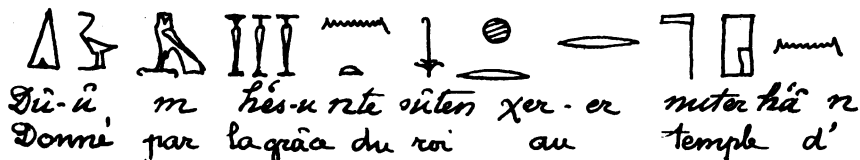 Dû-û m hés-u nte sûten χer-er nuter hâ n
Donné par la grâce du roi au temple d'